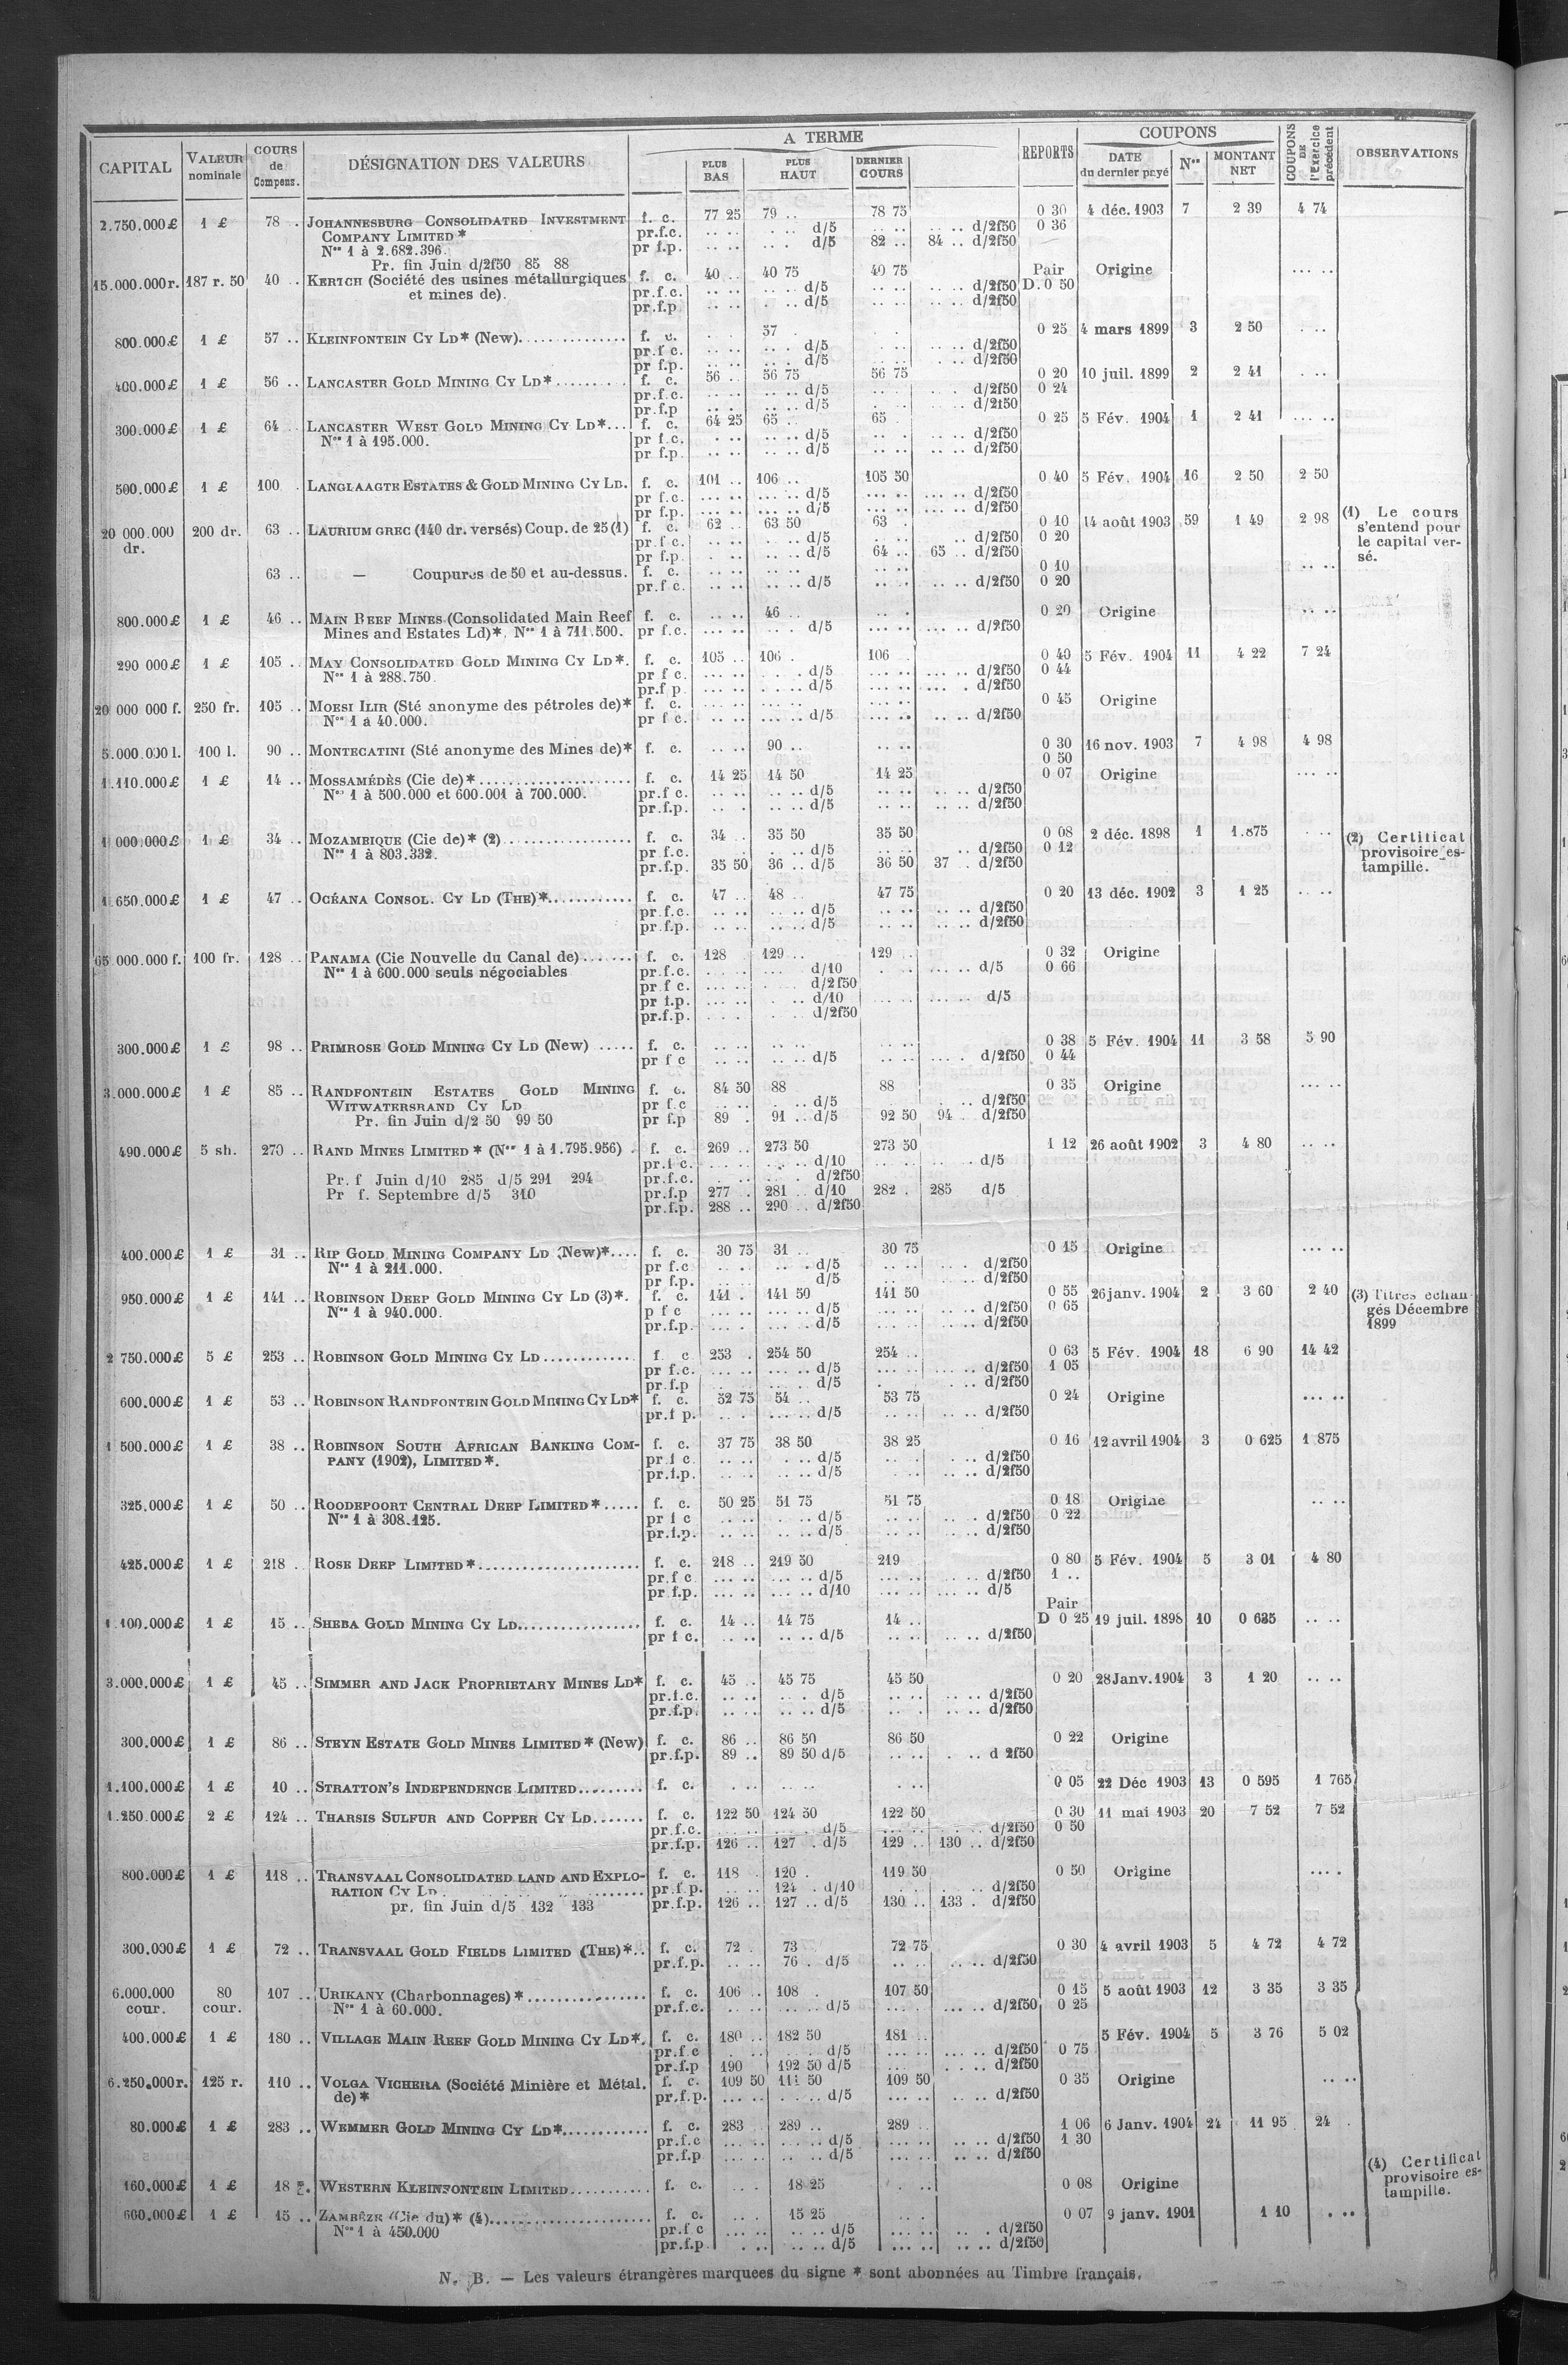 CAPITAL | VALEUR nominale | COURS de Compens. | DÉSIGNATION DES VALEURS | A TERME | PLUS BAS | PLUS HAUT | DERNIER COURS | REPORTS | COUPONS | DATE du dernier payé | Nos | MONTANT NET | COUPONS DE l'Exercice précédent | OBSERVATIONS
2.750.000£ 1 £ 78 . JOHANNESBURG CONSOLIDATED INVESTMENT f. c. 77 25 79 .. 78 75 0 30 4 déc. 1903 7 2 39 4 74
COMPANY LIMITED * pr.f.c. .. .. .. . d/5 .. .. .. .. d/2f50 0 36
Nos 1 à 2.682.396. pr f.p. .. .. . .. d/5 82 .. 84 .. d/2f50
Pr. fin Juin d/2f50 85 88
15.000.000r. 187 r. 50 40 .. KERTCH (Société des usines métallurgiques f. c. 40 .. 40 75 40 75 Pair Origine ... ..
et mines de). pr.f.c. .. .. .. .. d/5 .. .. .. .. d/2f50 D. 0 50
pr.f.p .. .. . .. d/5 .. .. .. .. d/2f50
800.000£ 1 £ 57 .. KLEINFONTEIN CY LD* (New). f. c. 57 0 25 4 mars 1899 3 2 50 . ..
pr.f c. .. .. .. . d/5 .. .. .. .. d/2f50
pr f.p. .. .. .. . d/5 .. .. .. .. d/2f50
400.000£ 1 £ 56 .. LANCASTER GOLD MINING CY LD* f. c. 56 .. 56 75 56 75 0 20 10 juil. 1899 2 2 41 . ..
pr.f.c. .. .. .. .. d/5 .. .. d/2f50 0 24
pr.f.p .. .. .. .. d/5 d/2f50
300.000£ 1 £ 64 LANCASTER WEST GOLD MINING CY LD*... f. c. 64 25 65 .. 65 . 0 25 5 Fév. 1904 1 2 41 ... ..
Nos 1 à 195.000. pr f.c. . .. .. .. d/5 .. . .. .. d/2f50
pr f.p. .. .. .. .. d/5 .. .. .. .. d/2f50
500.000£ 1 £ 100 . LANGLAAGTE ESTATES & GOLD MINING CY LD. f. c. 101 .. 106 .. 105 50 0 40 5 Fév. 1904 16 2 50 2 50
pr f.c. ... .. ... .. d/5 ... .. ... .. d/2f50
pr f.p. ... .. ... .. d/5 ... .. ... .. d/2f50
20 000.000 dr. 200 dr. 63 .. LAURIUM GREC (140 dr. versés) Coup. de 25 (1) f. c. 62 .. 63 50 63 . 0 10 14 août 1903 59 1 49 2 98 (1) Le cours
s'entend pour
le capital ver-
sé.
pr.f c. .. .. . .. d/5 .. d/2f50 0 20
pr f.p. . .. . .. d/5 64 .. 65 .. d/2f50
63 .. — Coupures de 50 et au-dessus. f. c. .. .. .. .. .. .. 0 10 .. ..
pr.f c. .. .. .. .. d/5 .. .. .. .. d/2f50 0 20
800.000£ 1 £ 46 .. MAIN REEF MINES (Consolidated Main Reef f. c. .. .. 46 .. .. . 0 20 Origine .. ..
Mines and Estates Ld)*. Nos 1 à 711.500. pr f.c. ... .. .. . d/5 ... .. ... .. d/2f50
290 000£ 1 £ 105 .. MAY CONSOLIDATED GOLD MINING CY LD*. f. c. 105 .. 106 . 106 0 40 5 Fév. 1904 11 4 22 7 24
Nos 1 à 288.750. pr f c. ... .. . d/5 ... .. ... .. d/2f50 0 44
pr.f p. ... .. . .. d/5 ... .. ... . d/2f50
20 000 000 f. 250 fr. 105 .. MOESI ILIR (Sté anonyme des pétroles de)* f. c. ... .. ... .. ... .. 0 45 Origine
Nos 1 à 40.000. pr f c. ... .. ... .. d/5 ... .. .. .. d/2f50
5.000.000 l. 100 l. 90 .. MONTECATINI (Sté anonyme des Mines de)* f. c. .. .. 90 .. .. .. 0 30 16 nov. 1903 7 4 98 4 98
0 50
1.110.000£ 1 £ 14 .. MOSSAMÉDÈS (Cie de)* f. c. 14 25 14 50 14 25 0 07 Origine ... ..
Nos 1 à 500.000 et 600.001 à 700.000. pr.f c. .. .. .. .. d/5 .. .. .. .. d/2f50
pr.f.p. .. . .. .. d/5 .. .. .. .. d/2f50
1 000.000£ 1 £ 34 .. MOZAMBIQUE (Cie de)* (2) f. c. 34 .. 35 50 35 50 0 08 2 déc. 1898 1 1.875 . .. (2) Certificat
provisoire es-
tampillé.
Nos 1 à 803.332. pr.f.c. . .. d/5 .. d/2f50 0 12
pr.f.p. 35 50 36 .. d/5 36 50 37 . d/2f50
1.650.000£ 1 £ 47 .. OCÉANA CONSOL. CY LD (THE)* f. c. 47 .. 48 .. 47 75 0 20 13 déc. 1902 3 1 25 .. ..
pr.f.c. .. .. .. .. d/5 .. .. .. .. d/2f50
pr.f.p. .. .. .. .. d/5 .. .. .. .. d/2f50
65.000.000 f. 100 fr. 128 .. PANAMA (Cie Nouvelle du Canal de) f. c. 128 129 .. 129 .. 0 32 Origine
Nos 1 à 600.000 seuls négociables pr.f.c. ... .. d/10 ... .. d/5 0 66
pr f c. ... .. d/2f50
pr f.p. ... .. . .. d/10 ... .. ... .. d/5
pr.f.p. d/2f50
300.000£ 1 £ 98 .. PRIMROSE GOLD MINING CY LD (New) f. c. .. .. .. .. .. .. 0 38 5 Fév. 1904 11 3 58 5 90
pr f c .. .. .. .. d/5 .. .. .. . d/2f50 0 44
3.000.000£ 1 £ 85 .. RANDFONTEIN ESTATES GOLD MINING f. c. 84 50 88 88 0 35 Origine ... ..
WITWATERSRAND CY LD pr f.c .. . . .. d/5 .. .. d/2f50
Pr. fin Juin d/2 50 99 50 pr f.p 89 . 91 .. d/5 92 50 94 . d/2f50
490.000£ 5 sh. 270 .. RAND MINES LIMITED * (Nos 1 à 1.795.956) . f. c. 269 .. 273 50 273 50 1 12 26 août 1902 3 4 80 .. ..
pr.f c. d/10 .. .. . d/5
Pr. f Juin d/10 285 d/5 291 294 pr.f.c. d/2f50
Pr f. Septembre d/5 310 pr.f.p 277 . 281 .. d/10 282 . 285 d/5
pr.f.p. 288 .. 290 .. d/2f50
400.000£ 1 £ 31 .. RIP GOLD MINING COMPANY LD (New)*.... f. c. 30 75 31 .. 30 75 0 15 Origine ... ..
Nos 1 à 211.000. pr f.c . . .. . d/5 .. .. . d/2f50
pr f.p. d/5 .. .. d/2f50
950.000£ 1 £ 141 .. ROBINSON DEEP GOLD MINING CY LD (3)*. f. c. 141 . 141 50 141 50 0 55 26 janv. 1904 2 3 60 2 40 (3) Titres échan-
gés Décembre
1899
Nos 1 à 940.000. p f c ... .. ... .. d/5 ... .. ... .. d/2f50 0 65
pr.f.p. ... .. ... .. d/5 ... .. ... .. d/2f50
2 750.000£ 5 £ 253 .. ROBINSON GOLD MINING CY LD f. c 253 . 254 50 254 .. 0 63 5 Fév. 1904 18 6 90 14 42
pr f.c. ... .. ... .. d/5 ... .. ... .. d/2f50 1 05
pr.f.p .. .. d/5 .. .. d/2f50
600.000£ 1 £ 53 .. ROBINSON RANDFONTEIN GOLD MINING CY LD* f. c. 52 75 54 .. 53 75 0 24 Origine ... ..
pr.f p. .. . ... .. d/5 .. .. .. .. d/2f50
1 500.000£ 1 £ 38 .. ROBINSON SOUTH AFRICAN BANKING COM- f. c. 37 75 38 50 38 25 0 16 12 avril 1904 3 0 625 1 875
PANY (1902), LIMITED *. pr f c .. .. .. . d/5 .. .. . .. d/2f50
pr.f.p. .. .. .. . d/5 . .. .. .. d/2f50
325.000£ 1 £ 50 .. ROODEPOORT CENTRAL DEEP LIMITED * f. c. 50 25 51 75 51 75 0 18 Origine .. ..
Nos 1 à 308.125. pr f c .. .. .. . d/5 .. .. .. .. d/2f50 0 22
pr.f.p. .. .. .. .. d/5 .. .. .. .. d/2f50
425.000£ 1 £ 218 .. ROSE DEEP LIMITED * f. c. 218 .. 219 50 219 0 80 5 Fév. 1904 5 3 01 4 80
pr.f c ... .. ... .. d/5 ... .. ... .. d/2f50 1 ..
pr f.p. ... .. ... .. d/10 ... .. ... .. d/5
Pair
1.100.000£ 1 £ 15 .. SHEBA GOLD MINING CY LD f. c. 14 .. 14 75 14 .. D 0 25 19 juil. 1898 10 0 625 .. ..
pr f c. .. .. .. .. d/5 .. .. .. .. d/2f50
3.000.000£ 1 £ 45 .. SIMMER AND JACK PROPRIETARY MINES LD* f. c. 45 .. 45 75 45 50 0 20 28 Janv. 1904 3 1 20 .. ..
pr.f.c. .. .. .. . d/5 .. .. .. .. d/2f50
pr.f.p. .. .. .. .. d/5 .. . .. .. d/2f50
300.000£ 1 £ 86 .. STEYN ESTATE GOLD MINES LIMITED * (New) f. c. 86 .. 86 50 86 50 0 22 Origine
pr.f.p. 89 .. 89 50 d/5 .. .. . .. d 2f50
1.100.000£ 1 £ 10 .. STRATTON'S INDEPENDENCE LIMITED f. c. . .. .. .. .. . 0 05 22 Déc 1903 13 0 595 1 765
1.250.000£ 2 £ 124 .. THARSIS SULFUR AND COPPER CY LD f. c. 122 50 124 50 122 50 0 30 11 mai 1903 20 7 52 7 52
pr.f.c. d/5 .. d/2f50 0 50
pr.f.p. 126 .. 127 . d/5 129 .. 130 .. d/2f50
800.000£ 1 £ 118 .. TRANSVAAL CONSOLIDATED LAND AND EXPLO- f. c. 118 . 120 . 119 50 0 50 Origine ... .
RATION CY LD pr.f p. 124 . d/10 .. d/2f50
pr. fin Juin d/5 132 133 pr.f.p. 126 .. 127 .. d/5 130 .. 133 . d/2f50
300.000£ 1 £ 72 .. TRANSVAAL GOLD FIELDS LIMITED (THE)*.. f. c. 72 . 73 72 75 0 30 4 avril 1903 5 4 72 4 72
pr.f.p. .. .. 76 . d/5 .. .. .. .. d/2f50
6.000.000 cour. 80 cour. 107 .. URIKANY (Charbonnages) * f. c. 106 .. 108 . 107 50 0 15 5 août 1903 12 3 35 3 35
Nos 1 à 60.000. pr.f.c. .. .. .. .. d/5 ... . ... .. d/2f50 0 25
400.000£ 1 £ 180 .. VILLAGE MAIN REEF GOLD MINING CY LD*. f. c. 180 .. 182 50 181 .. 5 Fév. 1904 5 3 76 5 02
pr.f.c . .. .. d/5 ... .. ... .. d/2f50 0 75
pr.f.p 190 192 50 d/5 ... . .. d/2f50
6.250.000r. 125 r. 110 .. VOLGA VICHERA (Société Minière et Métal. f. c. 109 50 111 50 109 50 0 35 Origine .. ..
de) * pr.f.p. ... .. . .. d/5 ... .. .. .. d/2f50
80.000£ 1 £ 283 .. WEMMER GOLD MINING CY LD* f. c. 283 289 .. 289 .. 1 06 6 Janv. 1904 24 11 95 24 .
pr.f.c ... .. .. .. d/5 ... .. .. .. d/2f50 1 30
pr.f.p ... .. .. .. d/5 ... .. .. .. d/2f50
160.000£ 1 £ 18 WESTERN KLEINFONTEIN LIMITED f. c. .. . 18 25 . .. 0 08 Origine (4) Certificat
provisoire es-
tampillé.
600.000£ 1 £ 15 .. ZAMBÈZE (Cie du)* (4) f. c. .. . 15 25 .. . 0 07 9 janv. 1901 1 10 . ..
Nos 1 à 450.000 pr.f c ... .. .. .. d/5 ... .. .. . d/2f50
pr.f.p . .. .. .. d/5 ... .. .. .. d/2f50
N. B. — Les valeurs étrangères marquées du signe * sont abonnées au Timbre français.